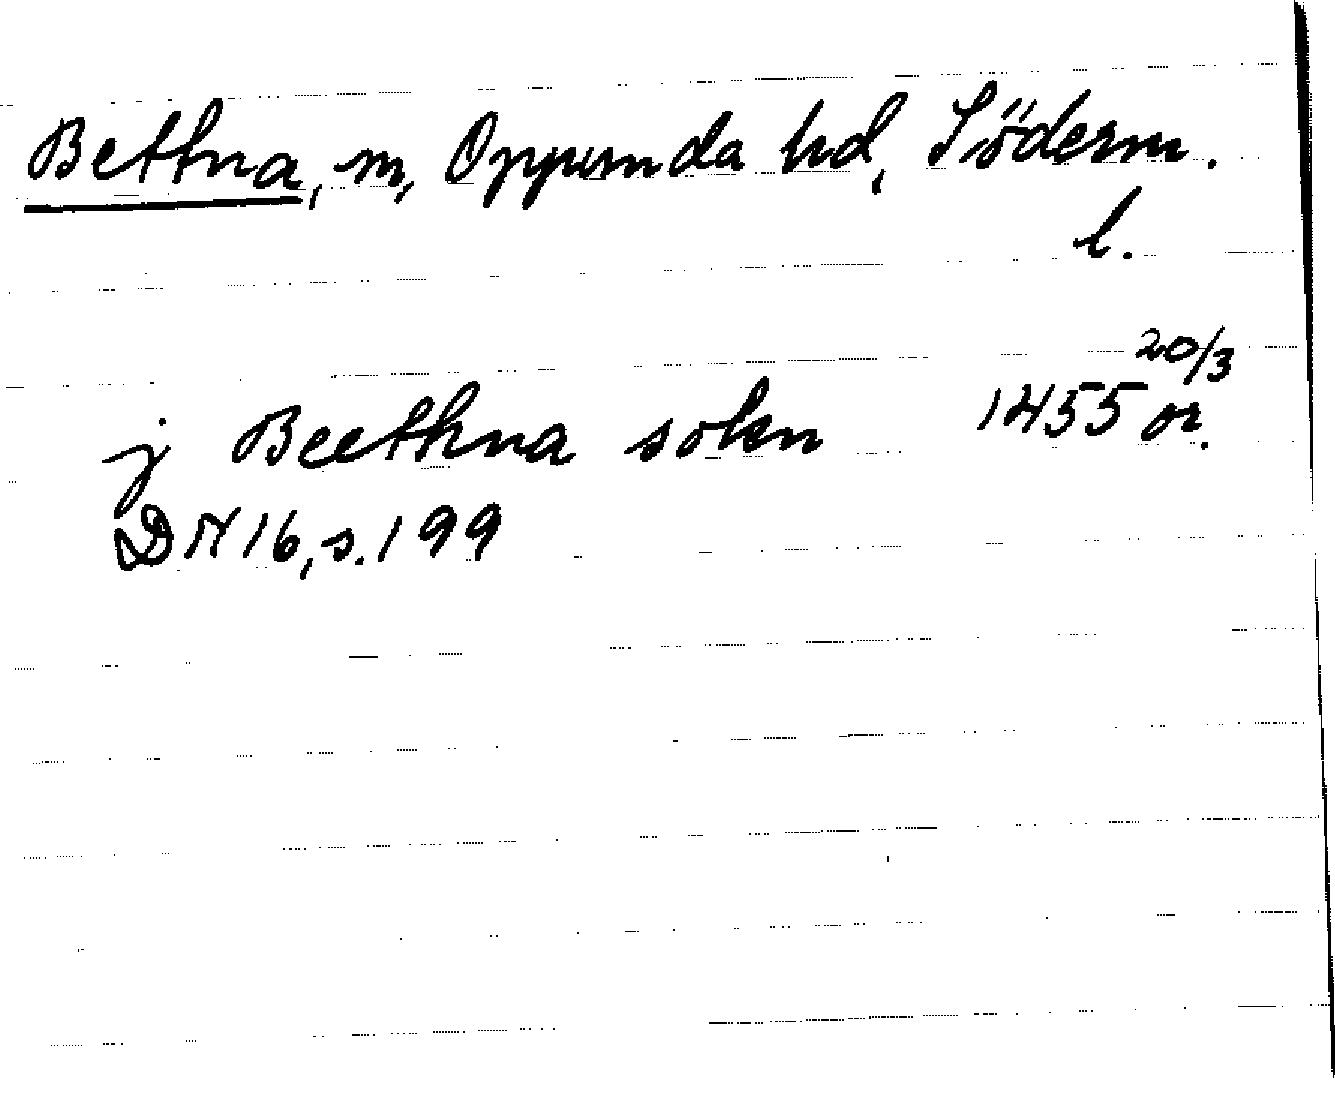 Bettna, sn, Oppunda hd, Söderm.
l.
j Beethna sokn 1455 20/3 or.
DN 16, s. 199